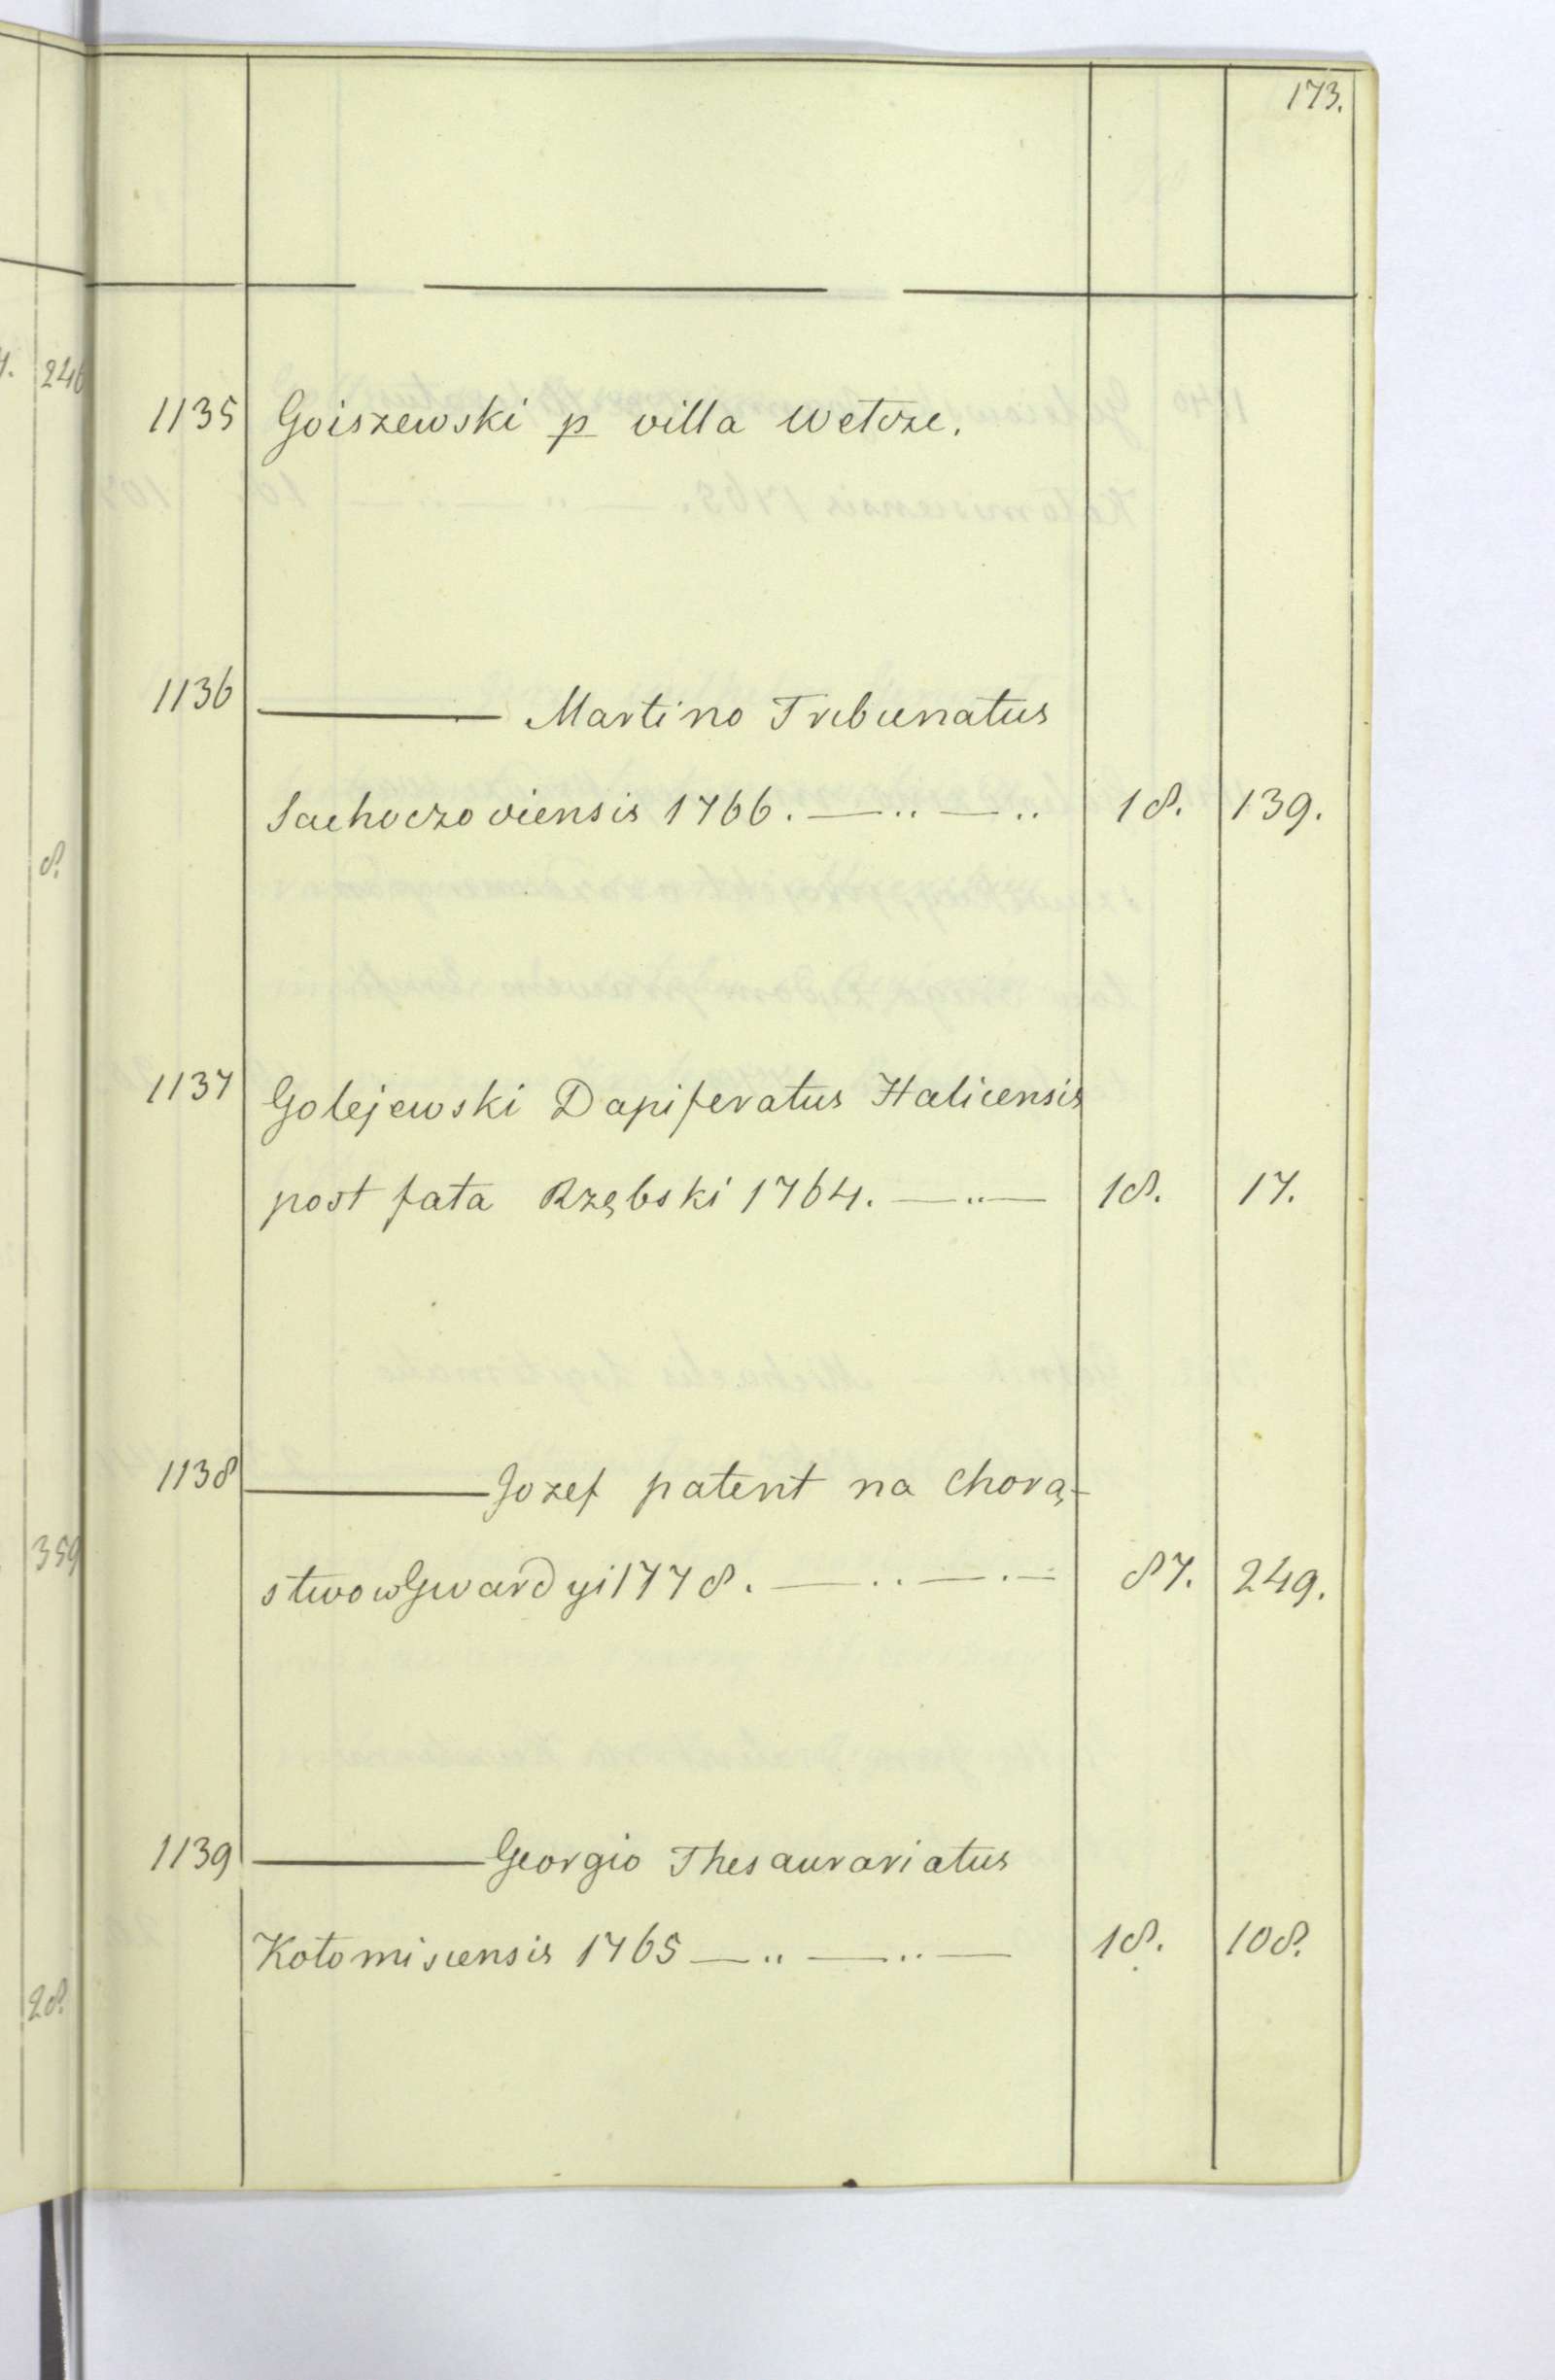 173.
1135 Goiszewski p villa Wetcze.
1136 ——— Martino Tribunatus
Sachoczoviensis 1766. —..—.. 18. 139.
1137 Golejewski Dapiferatus Halicensis
post fata Rzębski 1764. —..— 18. 17.
1138 ——— Jozef patent na chorą-
stwo w Gwardyi 1778. —..—.— 87. 249.
1139 ——— Georgio Thesaurariatus
Kołomiensis 1765 —..—..— 18. 108.
246
8.
359
28.